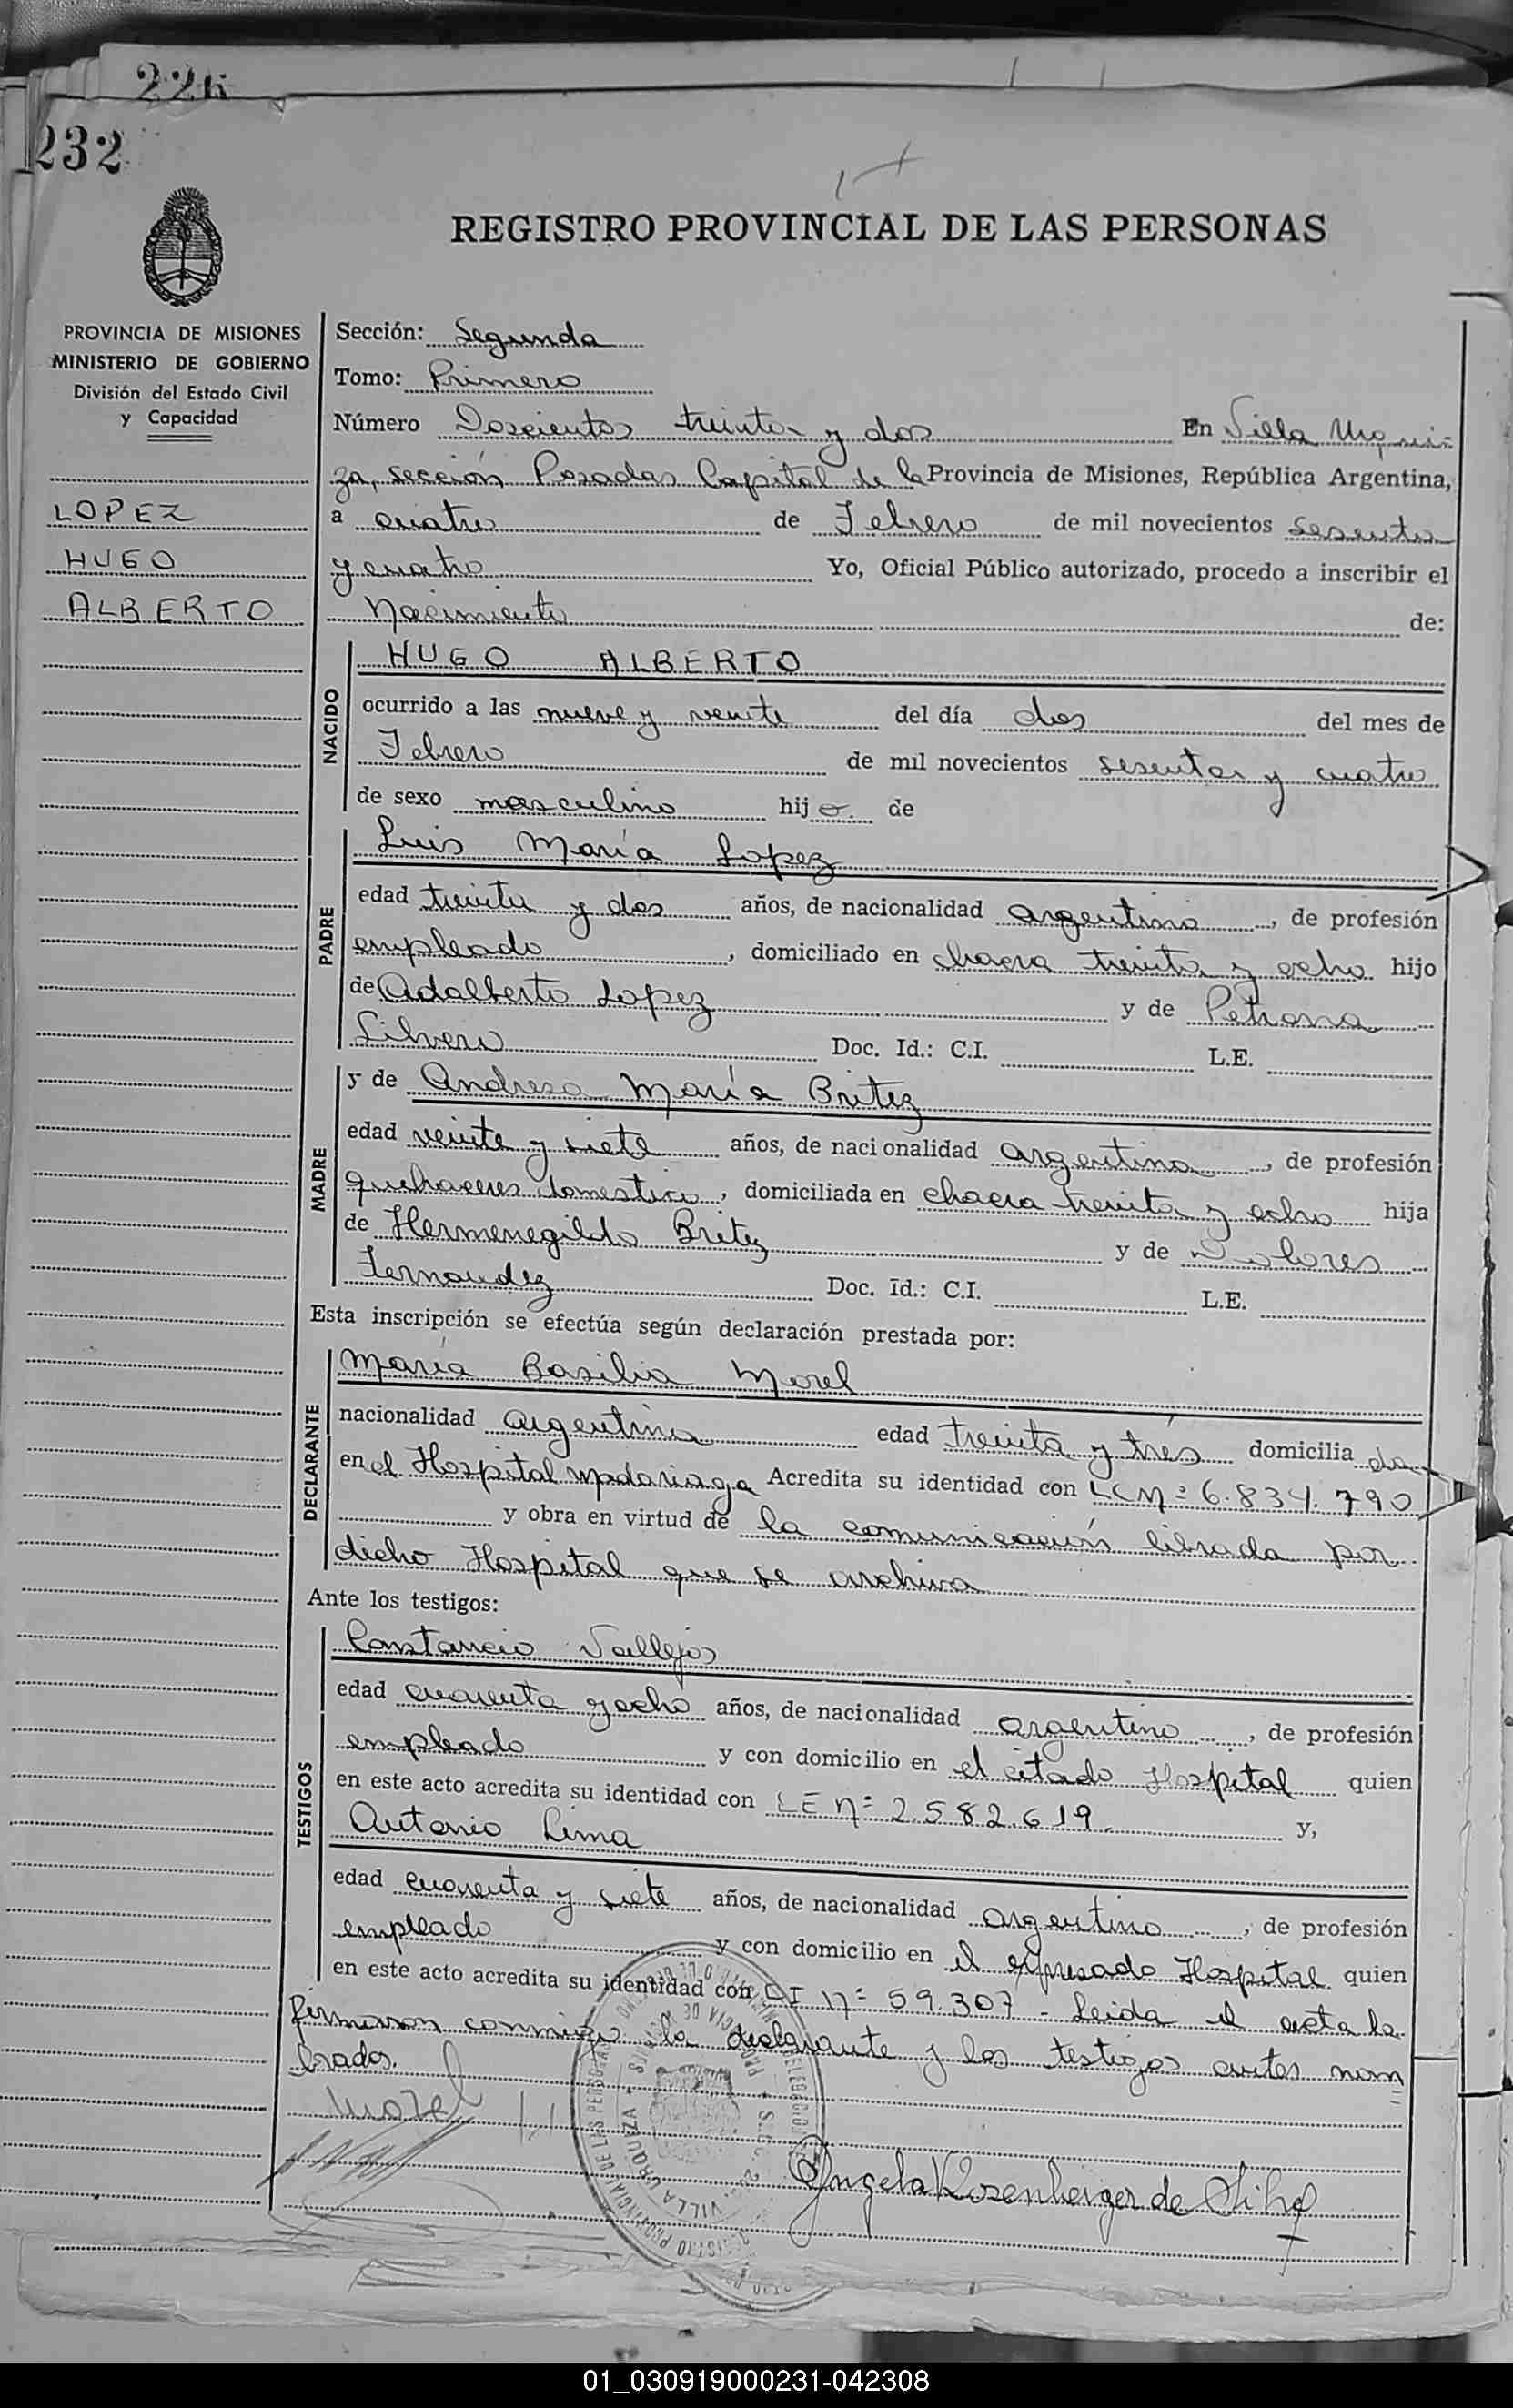 226
232
REGISTRO PROVINCIAL DE LAS PERSONAS
PROVINCIA DE MISIONES
MINISTERIO DE GOBIERNO
División del Estado Civil
y Capacidad
LOPEZ
HUGO
ALBERTO
Sección: Segunda
Tomo: Primero
Número Doscientos treinta y dos En Villa Urqui=
za, sección Posadas Capital de la Provincia de Misiones, República Argentina,
a cuatro de Febrero de mil novecientos sesenta
y cuatro Yo, Oficial Público autorizado, procedo a inscribir el
Nacimiento de:
NACIDO
HUGO ALBERTO
ocurrido a las nueve y veinte del día dos del mes de
Febrero de mil novecientos sesenta y cuatro
de sexo masculino hijo de
PADRE
Luis María Lopez
edad treinta y dos años, de nacionalidad argentina, de profesión
empleado, domiciliado en chacra treinta y ocho hijo
de Adalberto Lopez y de Petrona
Silvero Doc. Id.: C.I. L.E.
MADRE
y de Andresa María Britez
edad veinte y siete años, de nacionalidad argentina, de profesión
quehaceres domestico, domiciliada en chacra treinta y ocho hija
de Hermenegildo Britez y de Dolores
Fernandez Doc. Id.: C.I. L.E.
Esta inscripción se efectúa según declaración prestada por:
DECLARANTE
María Basilia Morel
nacionalidad argentina edad treinta y trés domicilia da
en el Hospital Madariaga Acredita su identidad con LC Nº 6.834.790
y obra en virtud de la comunicación librada por
dicho Hospital que se archiva
Ante los testigos:
TESTIGOS
Constancio Vallejos
edad cuarenta y ocho años, de nacionalidad argentino, de profesión
empleado y con domicilio en el citado Hospital quien
en este acto acredita su identidad con LE Nº 2.582.619. y,
Antonio Lima
edad cuarenta y siete años, de nacionalidad argentino, de profesión
empleado y con domicilio en el expresado Hospital quien
en este acto acredita su identidad con CI Nº 59.307 - Leida el acta la
firmaron conmigo la declarante y los testigos antes nom=
brados.
Morel
VILLA URQUIZA
Angela K Rosenberger de Silva
01_030919000231-042308